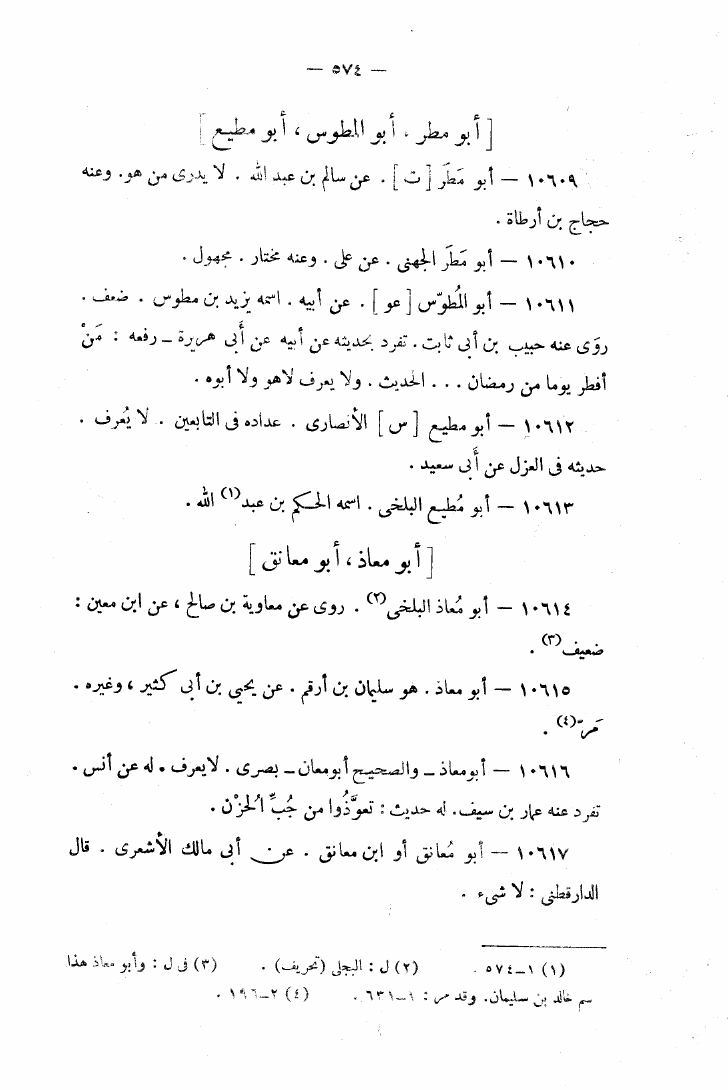 — ٥٧٤ —
[ أبو مطر ، أبو المطوس ، أبو مطيع ]
١٠٦٠٩ — أبو مَطَر [ ت ] . عن سالم بن عبد الله . لا يدرى من هو. وعنه
حجاج بن أرطاة .
١٠٦١٠ — أبو مَطَر الجهنى . عن على . وعنه مختار . مجهول .
١٠٦١١ — أبو المُطوّس [ عو ] . عن أبيه . اسمه يزيد بن مطوس . ضعف .
روَى عنه حبيب بن أبى ثابت . تفرد بحديثه عن أبيه عن أبى هريرة ــ رفعه : مَنْ
أفطر يوما من رمضان . . . الحديث . ولا يعرف لاهو ولا أبوه .
١٠٦١٢ — أبو مطيع [ س ] الأنصارى . عداده فى التابعين . لا يُعرف .
حديثه فى العزل عن أبى سعيد .
١٠٦١٣ — أبو مُطيع البلخى . اسمه الحكم بن عبد(١) الله .
[ أبو معاذ ، أبو معانق ]
١٠٦١٤ — أبو مُعاذ البلخى(٢) . روى عن معاوية بن صالح ، عن ابن معين :
ضعيف(٣) .
١٠٦١٥ — أبو معاذ . هو سليمان بن أرقم . عن يحيى بن أبى كثير ، وغيره .
مَرّ(٤) .
١٠٦١٦ — أبومعاذ ــ والصحيح أبومعان ــ بصرى . لايعرف . له عن أنس .
تفرد عنه عمار بن سيف. له حديث : تعوَّذُوا من جُبِّ الحُزْن .
١٠٦١٧ — أبو مُعانق أو ابن معانق . عن أبى مالك الأشعرى . قال
الدارقطنى : لا شىء .
(١) ١ــ٥٧٤ . (٢) ل : البجلى (تحريف) . (٣) فى ل : وأبو معاذ هذا
سم خالد بن سليمان. وقد مر : ١ــ٦٣١ . (٤) ٢ــ١٩٦ .